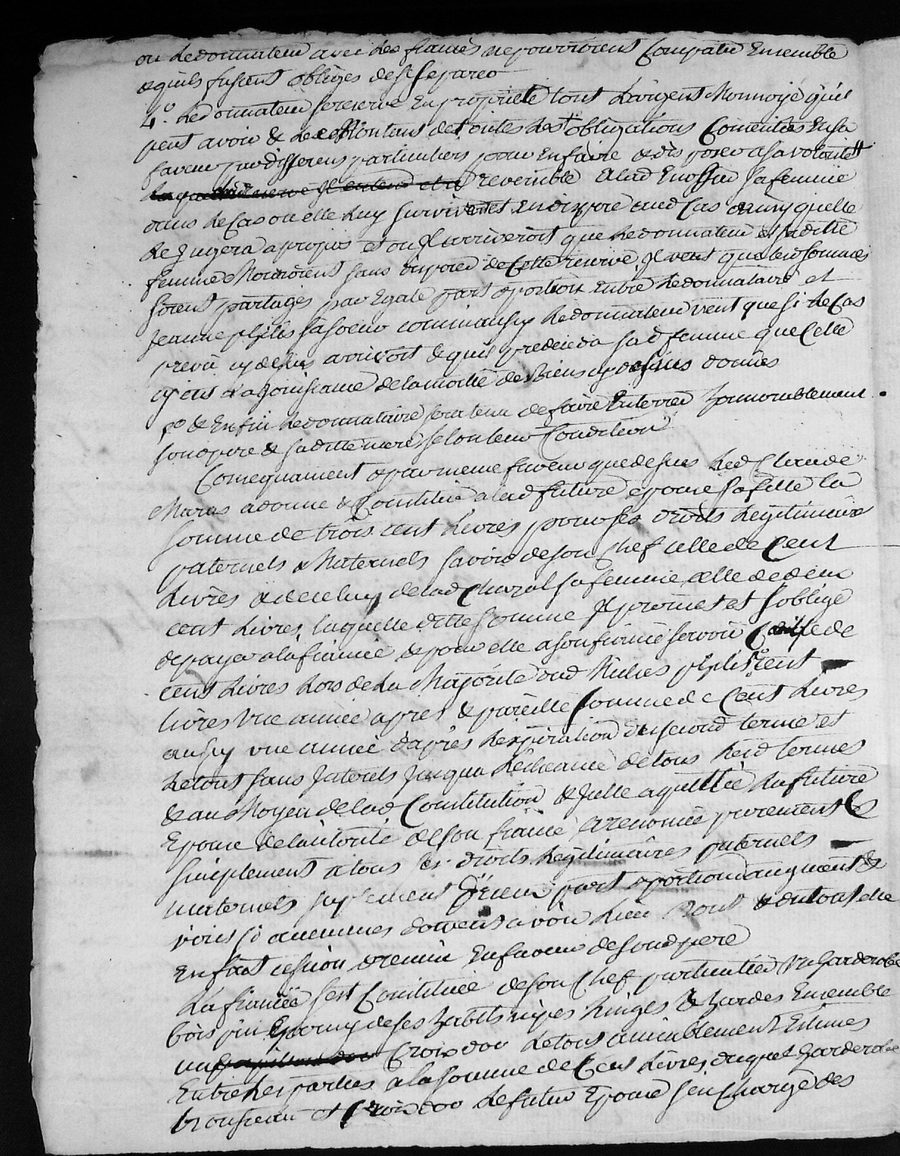 ou le donnateur avec les fiancés ne pourroient Compatir Ensemble
& quils fussent obligés de se separer
4.° le donnateur se reserve En proprieté tout l'argent Monnoÿé qu'il
peut avoir & le Montant de toutes les obligations Consenties En sa
faveur par differens particuliers pour En faire & disposer a sa volonté
reversible a lad sa femme
dans le Cas ou elle luy survivroit, En disposer aud Cas a qu'elle
le Jugera a propos et ou Il arriveroit que le donnateur et saditte
femme Mourroient sans disposer de Cette reserve Il veut que les sommes
soient partagés par Egale part & portion Entre le donnataire et
Jeanne sa soeur comm'aussy le donnateur veut que si le Cas
prevû cy dessus arrivoit & qu'il predeceda sad femme que Celle
cy ait la Jouissance de la moitié des Biens cy dessus donnés
5° & Enfin le donnataire sera tenu de faire Enterrer honnorablement
sond pere & saditte mere selon leur Condition
Consequament & par meme faveur que dessus led Claude
Maras a donné & Constitué a lad future epouse sa fille la
somme de trois cent livres pour ses droits legitimaires
paternels & Maternels savoir de son Chef celle de Cent
livres & de celuy de lad sa femme celle de deux
cent livres, laquelle ditte somme Il promet et s'oblige
de payer a la fiancée & pour elle a son futur savoir Celle de
cent livres lors de la Majorité dud cent
livres une année apres & pareille somme de Cent livres
aussy une année d'après l'expiration du second terme et
le tout sans Interets Jusqu'a l'echeance de tous lesd termes
& au Moyen de lad Constitution & Icelle aquittée la future
Epouse de l'autorité de son fiancé a renoncé purement &
simplement a tous ses droits legitimaires paternels
maternels suplement d'Iceux part & portion d'augment &
voirs si a aucunes doivent avoir lieu & du tout elle
En fait cession & remise En faveur de sond pere
La fiancée s'est Constituée de son Chef particulier Un Garderobe
bois pin Garny de ses habits nipes linges & hardes Ensemble
une Croix d'or le tout amiablement Estimés
Entre les parties a la somme de Cent livres, duquel garderobe
trousseau et Croix d'or le futur Epoux s'en Charge des